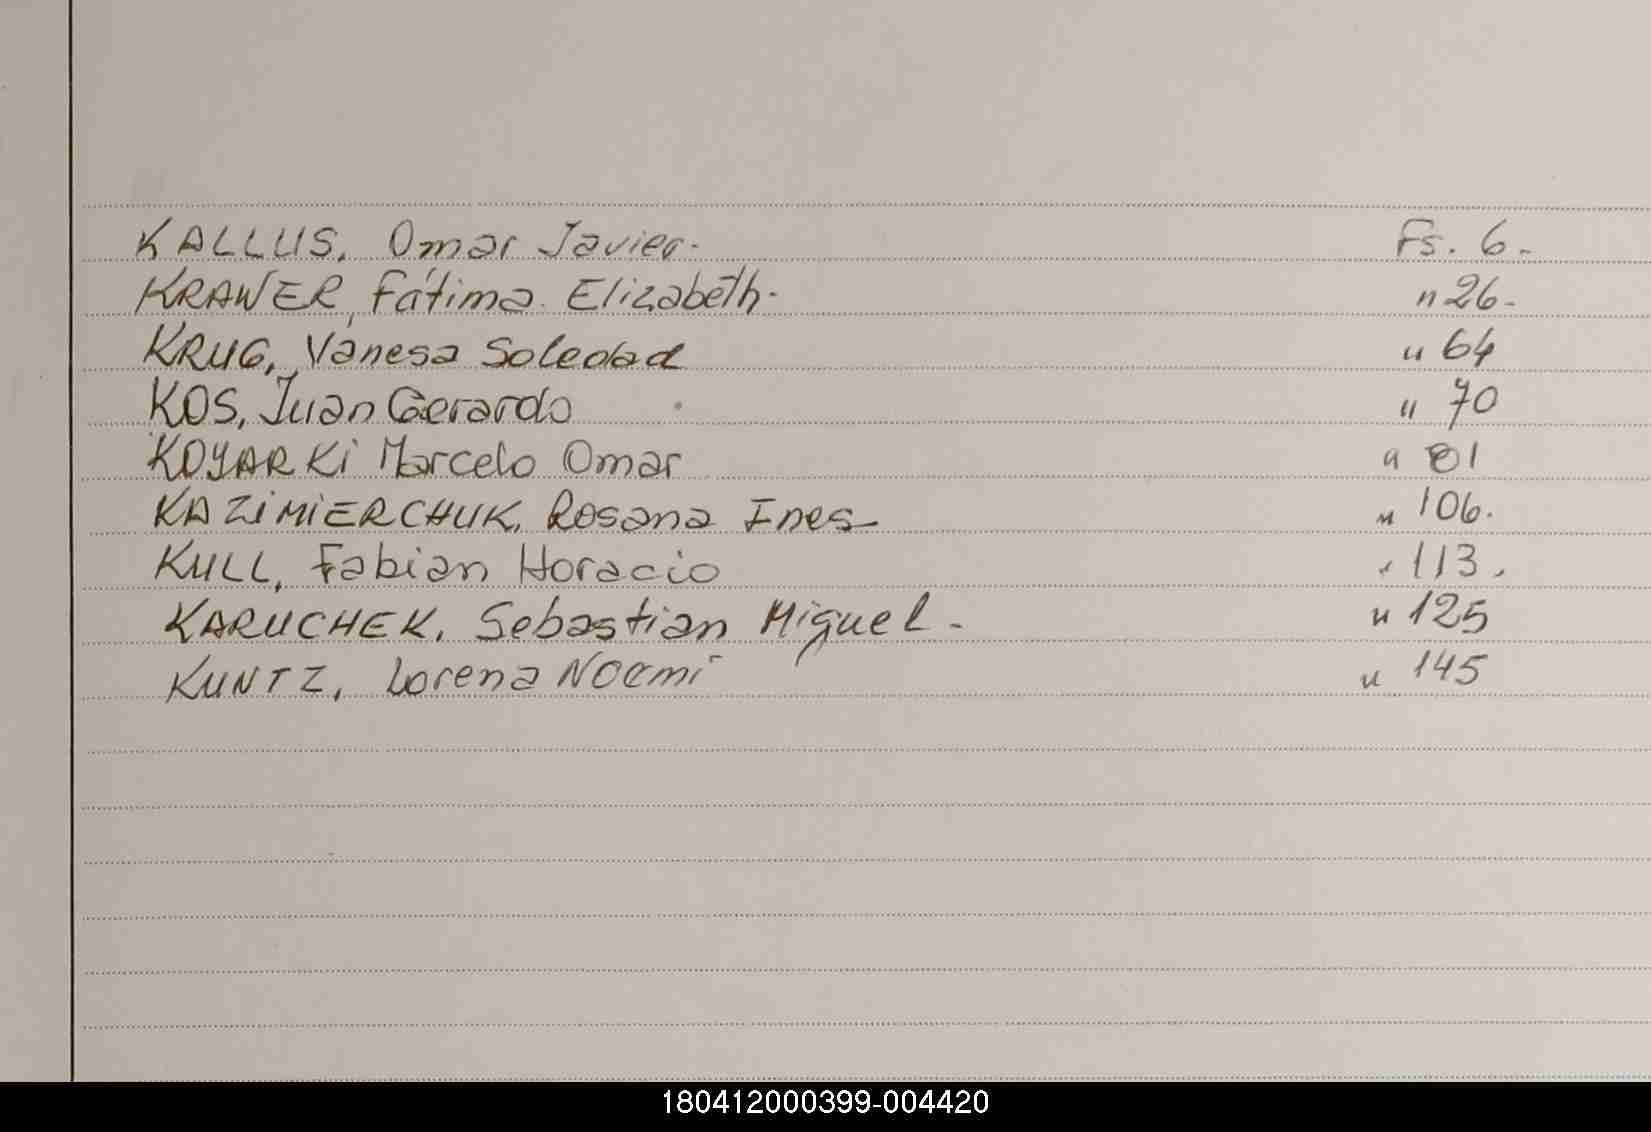 KALLUS, Omar Javier. Fs. 6.
KRAWER, Fátima Elizabeth. " 26.
KRUG, Vanesa Soledad " 64
KOS, Juan Gerardo " 70
KOYARKi Marcelo Omar " 81
KAZiMiERCHUK, Rosana Ines " 106.
KULL, Fabian Horacio " 113.
KARUCHEK, Sebastian Miguel. " 125
KUNTZ, Lorena NOEMí " 145
180412000399-004420